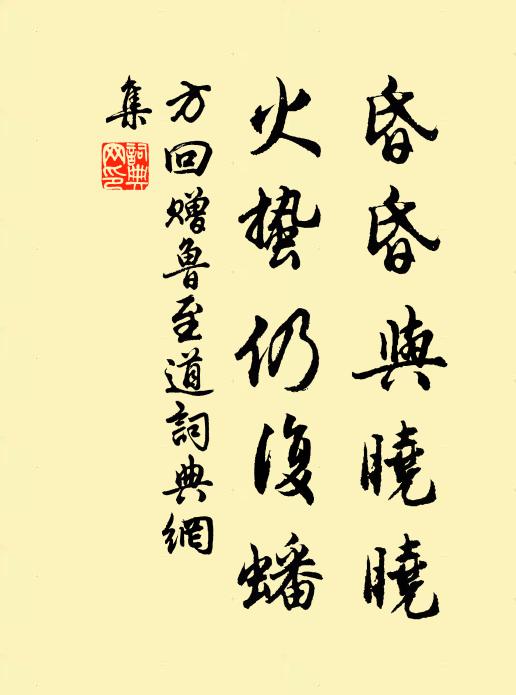 昏昏與曉曉
火蟄仍復蟠
方回贈魯至道詞典網
集
詞典網印